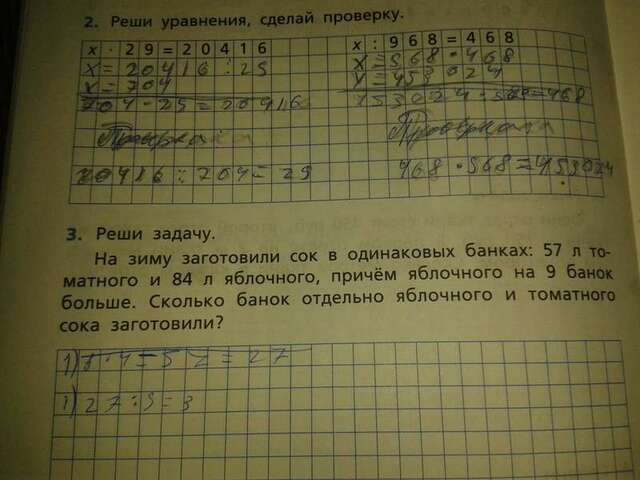 2. Реши уравнения, сделай проверку.
x · 29 = 20416
x : 968 = 468
X = 20416 : 29
X = 968 · 468
X = 704
X = 453024
704 · 29 = 20416
453024 : 968 = 468
Проверка
Проверка
20416 : 704 = 29
468 · 968 = 453024
3. Реши задачу.
На зиму заготовили сок в одинаковых банках: 57 л то-
матного и 84 л яблочного, причём яблочного на 9 банок
больше. Сколько банок отдельно яблочного и томатного
сока заготовили?
1)
1) 27 : 9 = 3